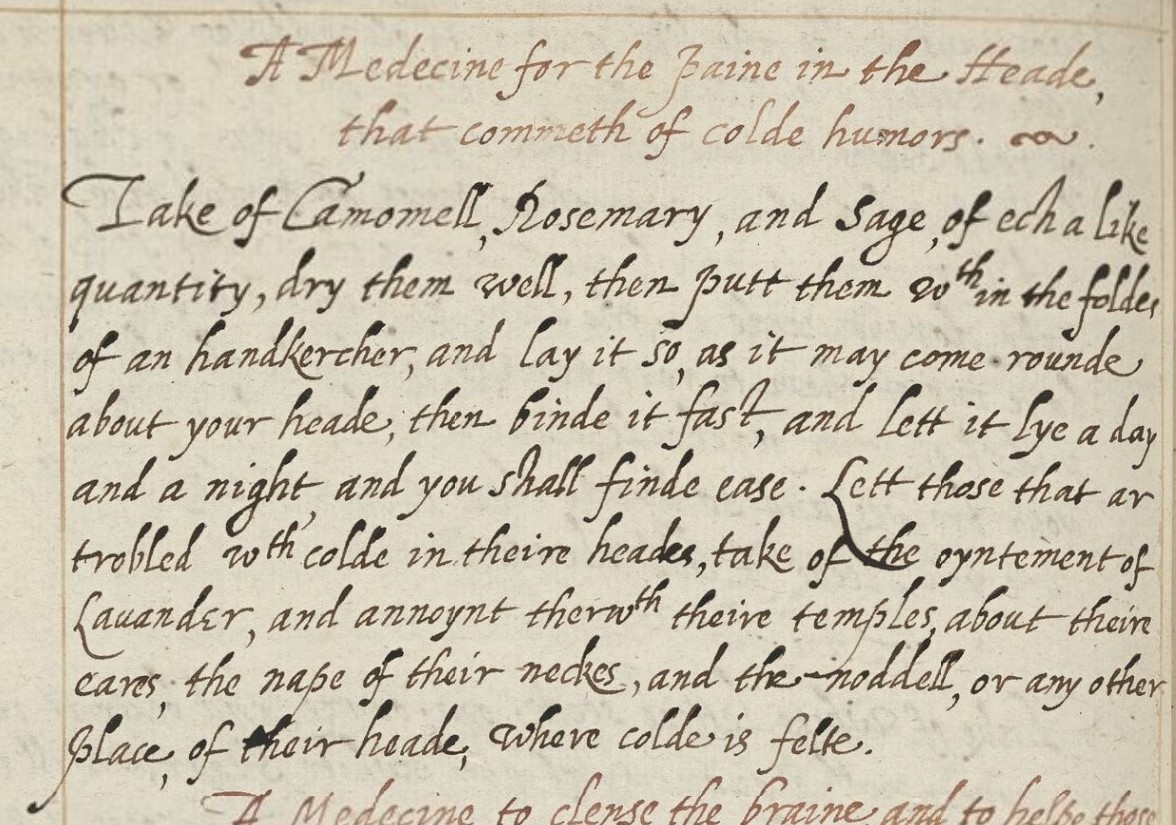 A Medecine for the paine in the Heade,
that commeth of colde humors.
Take of Camomell, Rosemary, and Sage, of ech a like
quantity, dry them well, then putt them wth in the foldes
of an handkercher, and lay it so, as it may come rounde
about your heade, then binde it fast, and lett it lye a day
and a night, and you shall finde ease. Lett those that ar
trobled wth colde in theire heades, take of the oyntement of
Lauander, and annoynt therwth theire temples, about theire
eares, the nape of their neckes, and the noddell, or any other
place, of their heade, where colde is felte.
A Medecine to clense the braine and to helpe those